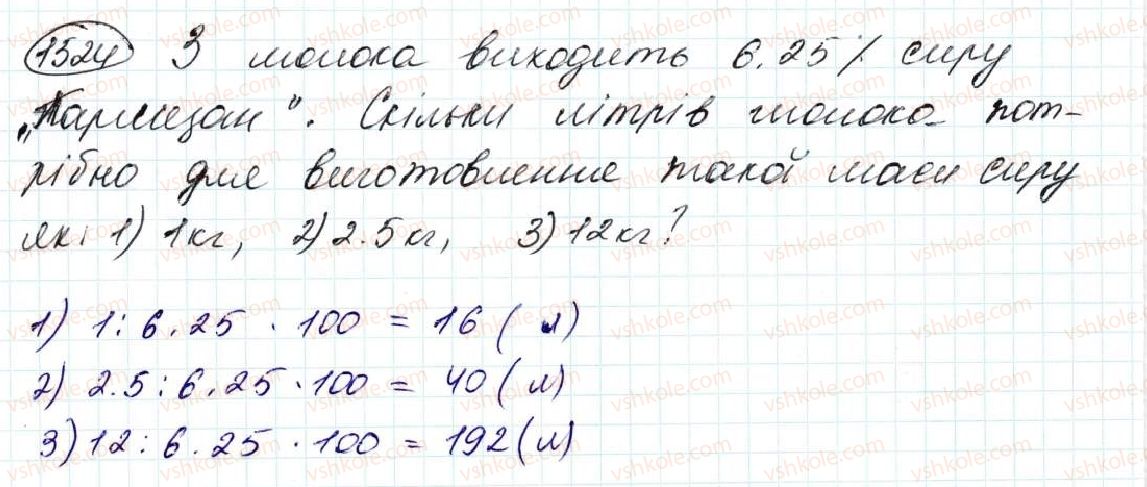 1524 З молока виходить 6.25% сиру
„Пармезан". Скільки літрів молока пот-
рібно для виготовлення такой маси сиру
як: 1) 1кг, 2) 2.5кг, 3) 12кг?
1) 1 : 6.25 · 100 = 16 (л)
2) 2.5 : 6.25 · 100 = 40 (л)
3) 12 : 6.25 · 100 = 192 (л)